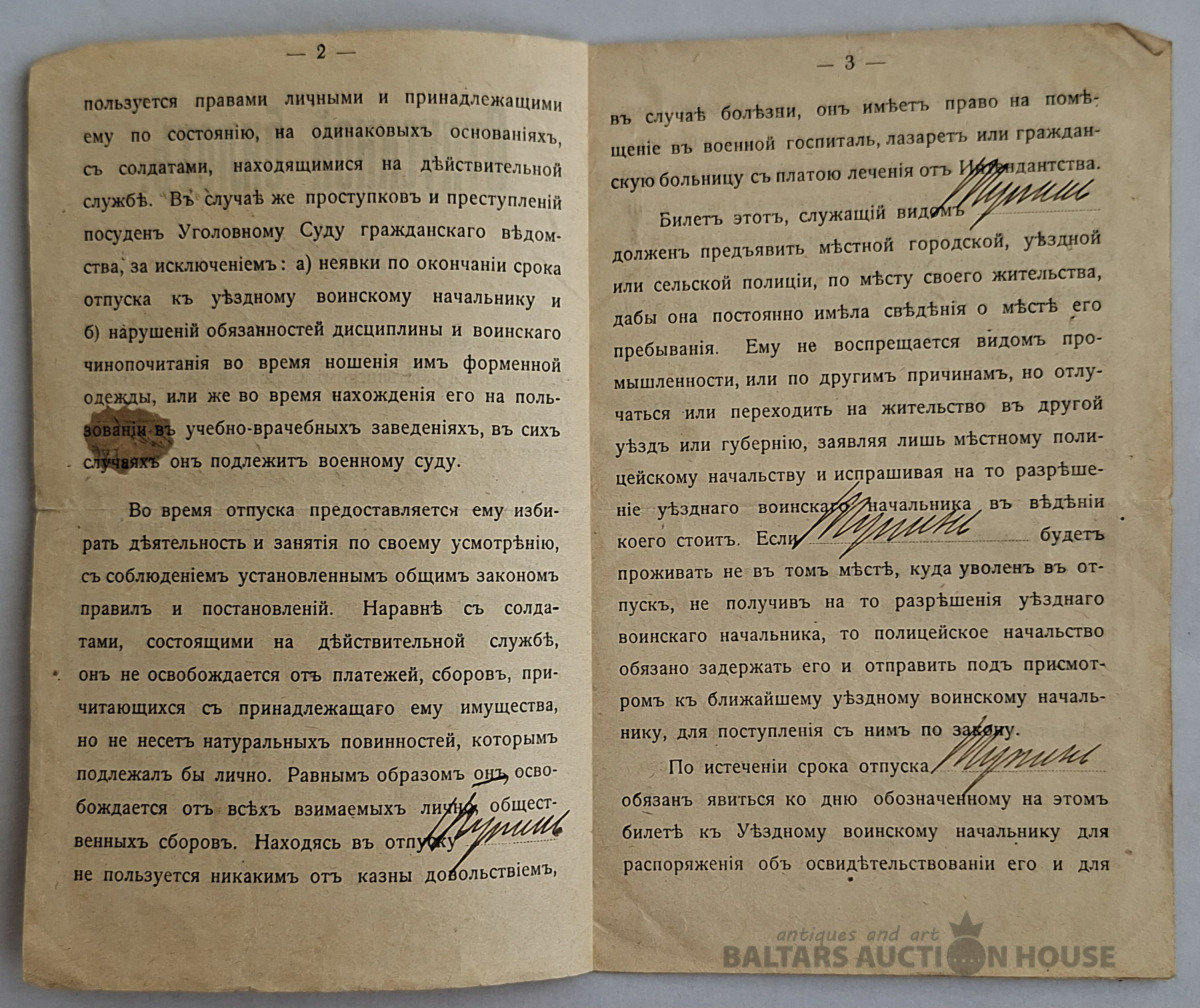 — 2 —
пользуется правами личными и принадлежащими
ему по состоянію, на одинаковыхъ основаніяхъ,
съ солдатами, находящимися на дѣйствительной
службѣ. Въ случаѣ же проступковъ и преступленій
посуденъ Уголовному Суду гражданскаго вѣдом-
ства, за исключеніемъ: а) неявки по окончаніи срока
отпуска къ уѣздному воинскому начальнику и
б) нарушеній обязанностей дисциплины и воинскаго
чинопочитанія во время ношенія имъ форменной
одежды, или же во время нахожденія его на поль-
зованіи въ учебно-врачебныхъ заведеніяхъ, въ сихъ
случаяхъ онъ подлежитъ военному суду.
Во время отпуска предоставляется ему изби-
рать дѣятельность и занятія по своему усмотрѣнію,
съ соблюденіемъ установленнымъ общимъ закономъ
правилъ и постановленій. Наравнѣ съ солда-
тами, состоящими на дѣйствительной службѣ,
онъ не освобождается отъ платежей, сборовъ, при-
читающихся съ принадлежащаго ему имущества,
но не несетъ натуральныхъ повинностей, которымъ
подлежалъ бы лично. Равнымъ образомъ онъ осво-
бождается отъ всѣхъ взимаемыхъ лично общест-
венныхъ сборовъ. Находясь въ отпуску
не пользуется никакимъ отъ казны довольствіемъ,
— 3 —
въ случаѣ болѣзни, онъ имѣетъ право на помѣ-
щеніе въ военной госпиталь, лазаретъ или граждан-
скую больницу съ платою леченія отъ Интендантства.
Билетъ этотъ, служащій видомъ
долженъ предъявить мѣстной городской, уѣздной
или сельской полиціи, по мѣсту своего жительства,
дабы она постоянно имѣла свѣдѣнія о мѣстѣ его
пребыванія. Ему не воспрещается видомъ про-
мышленности, или по другимъ причинамъ, но отлу-
чаться или переходить на жительство въ другой
уѣздъ или губернію, заявляя лишь мѣстному поли-
цейскому начальству и испрашивая на то разрѣше-
ніе уѣзднаго воинскаго начальника въ вѣдѣніи
коего стоитъ. Если будетъ
проживать не въ томъ мѣстѣ, куда уволенъ въ от-
пускъ, не получивъ на то разрѣшенія уѣзднаго
воинскаго начальника, то полицейское начальство
обязано задержать его и отправить подъ присмот-
ромъ къ ближайшему уѣздному воинскому началь-
нику, для поступленія съ нимъ по закону.
По истеченіи срока отпуска
обязанъ явиться ко дню обозначенному на этомъ
билетѣ къ Уѣздному воинскому начальнику для
распоряженія объ освидѣтельствованіи его и для
antiques and art
BALTARS AUCTION HOUSE